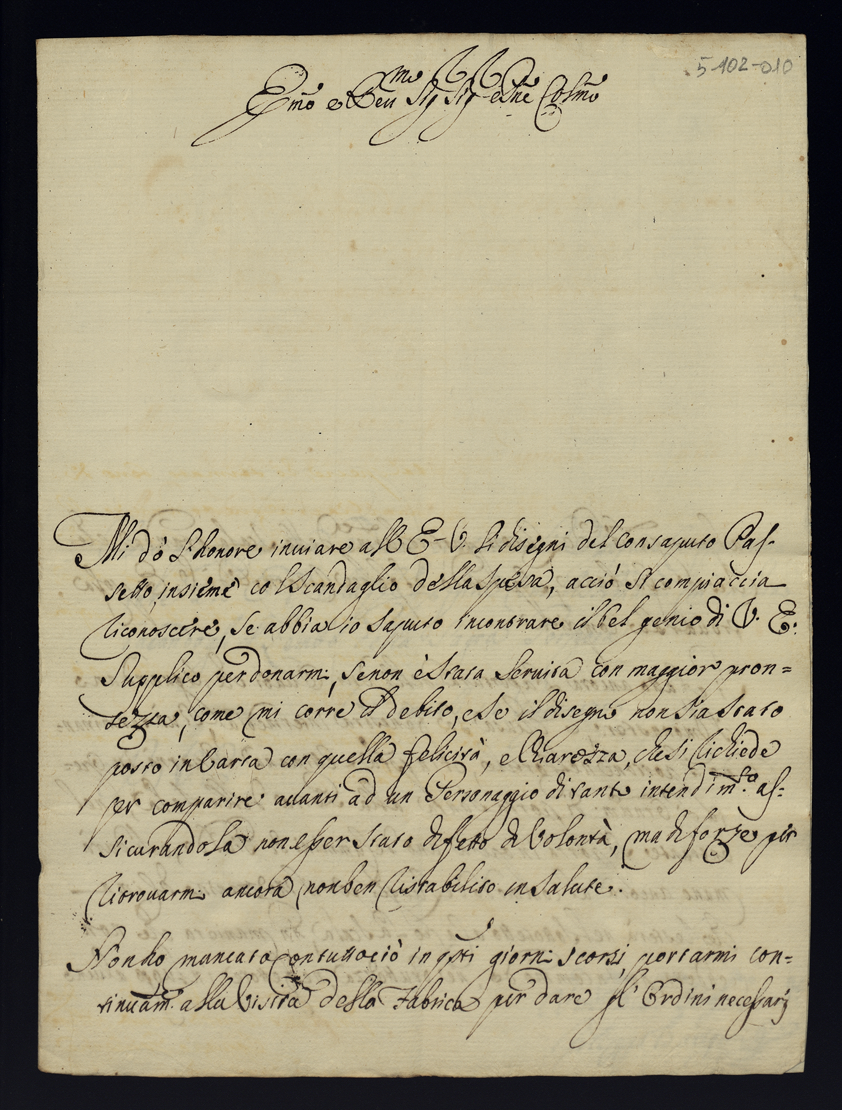 5-102-010
Emõ e Reu.mo Sig Sig e Pñe Colmõ
Mi dò l'honore inuiare all E. V. li disegni del consaputo Pas-
setto, insieme col Scandaglio della spesa, acciò si compiaccia
riconoscere, se abbia io saputo incontrare il bel genio di V. E.
Supplico perdonarmi, se non è stata seruita con maggior pron=
tezza, come mi corre il debito, e se il disegno non sia stato
posto in Carta con quella felicità, e Chiarezza, che si richiede
per comparire auanti ad un Personaggio di tanto intendim.to as=
sicurandola non esser stato difetto di Volontà, ma di forze per
ritrouarmi ancora non ben ristabilito in salute.
Non ho mancato contuttociò in qsti giorni scorsi portarmi con=
tinuam. alla Visita della Fabrica per dare gl' Ordini necessarij